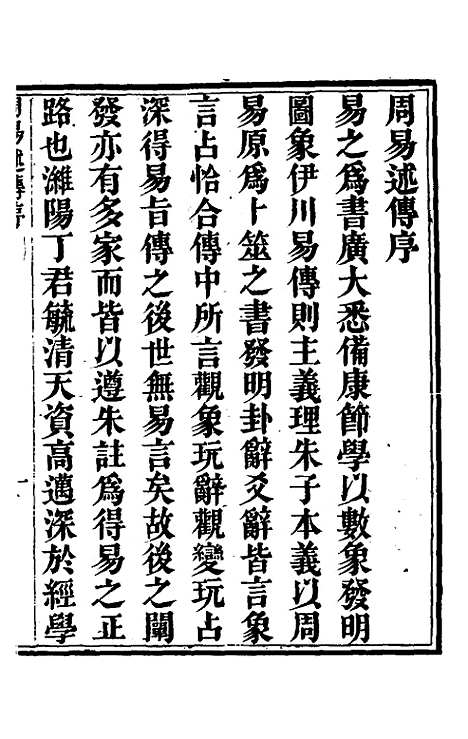 周易述傳序
易之爲書廣大悉備康節學以數象發明
圖象伊川易傳則主義理朱子本義以周
易原爲卜筮之書發明卦辭爻辭皆言象
言占恰合傳中所言觀象玩辭觀變玩占
深得易旨傳之後世無易言矣故後之闡
發亦有多家而皆以遵朱註爲得易之正
路也濰陽丁君毓清天資高邁深於經學
周易述傳序
一